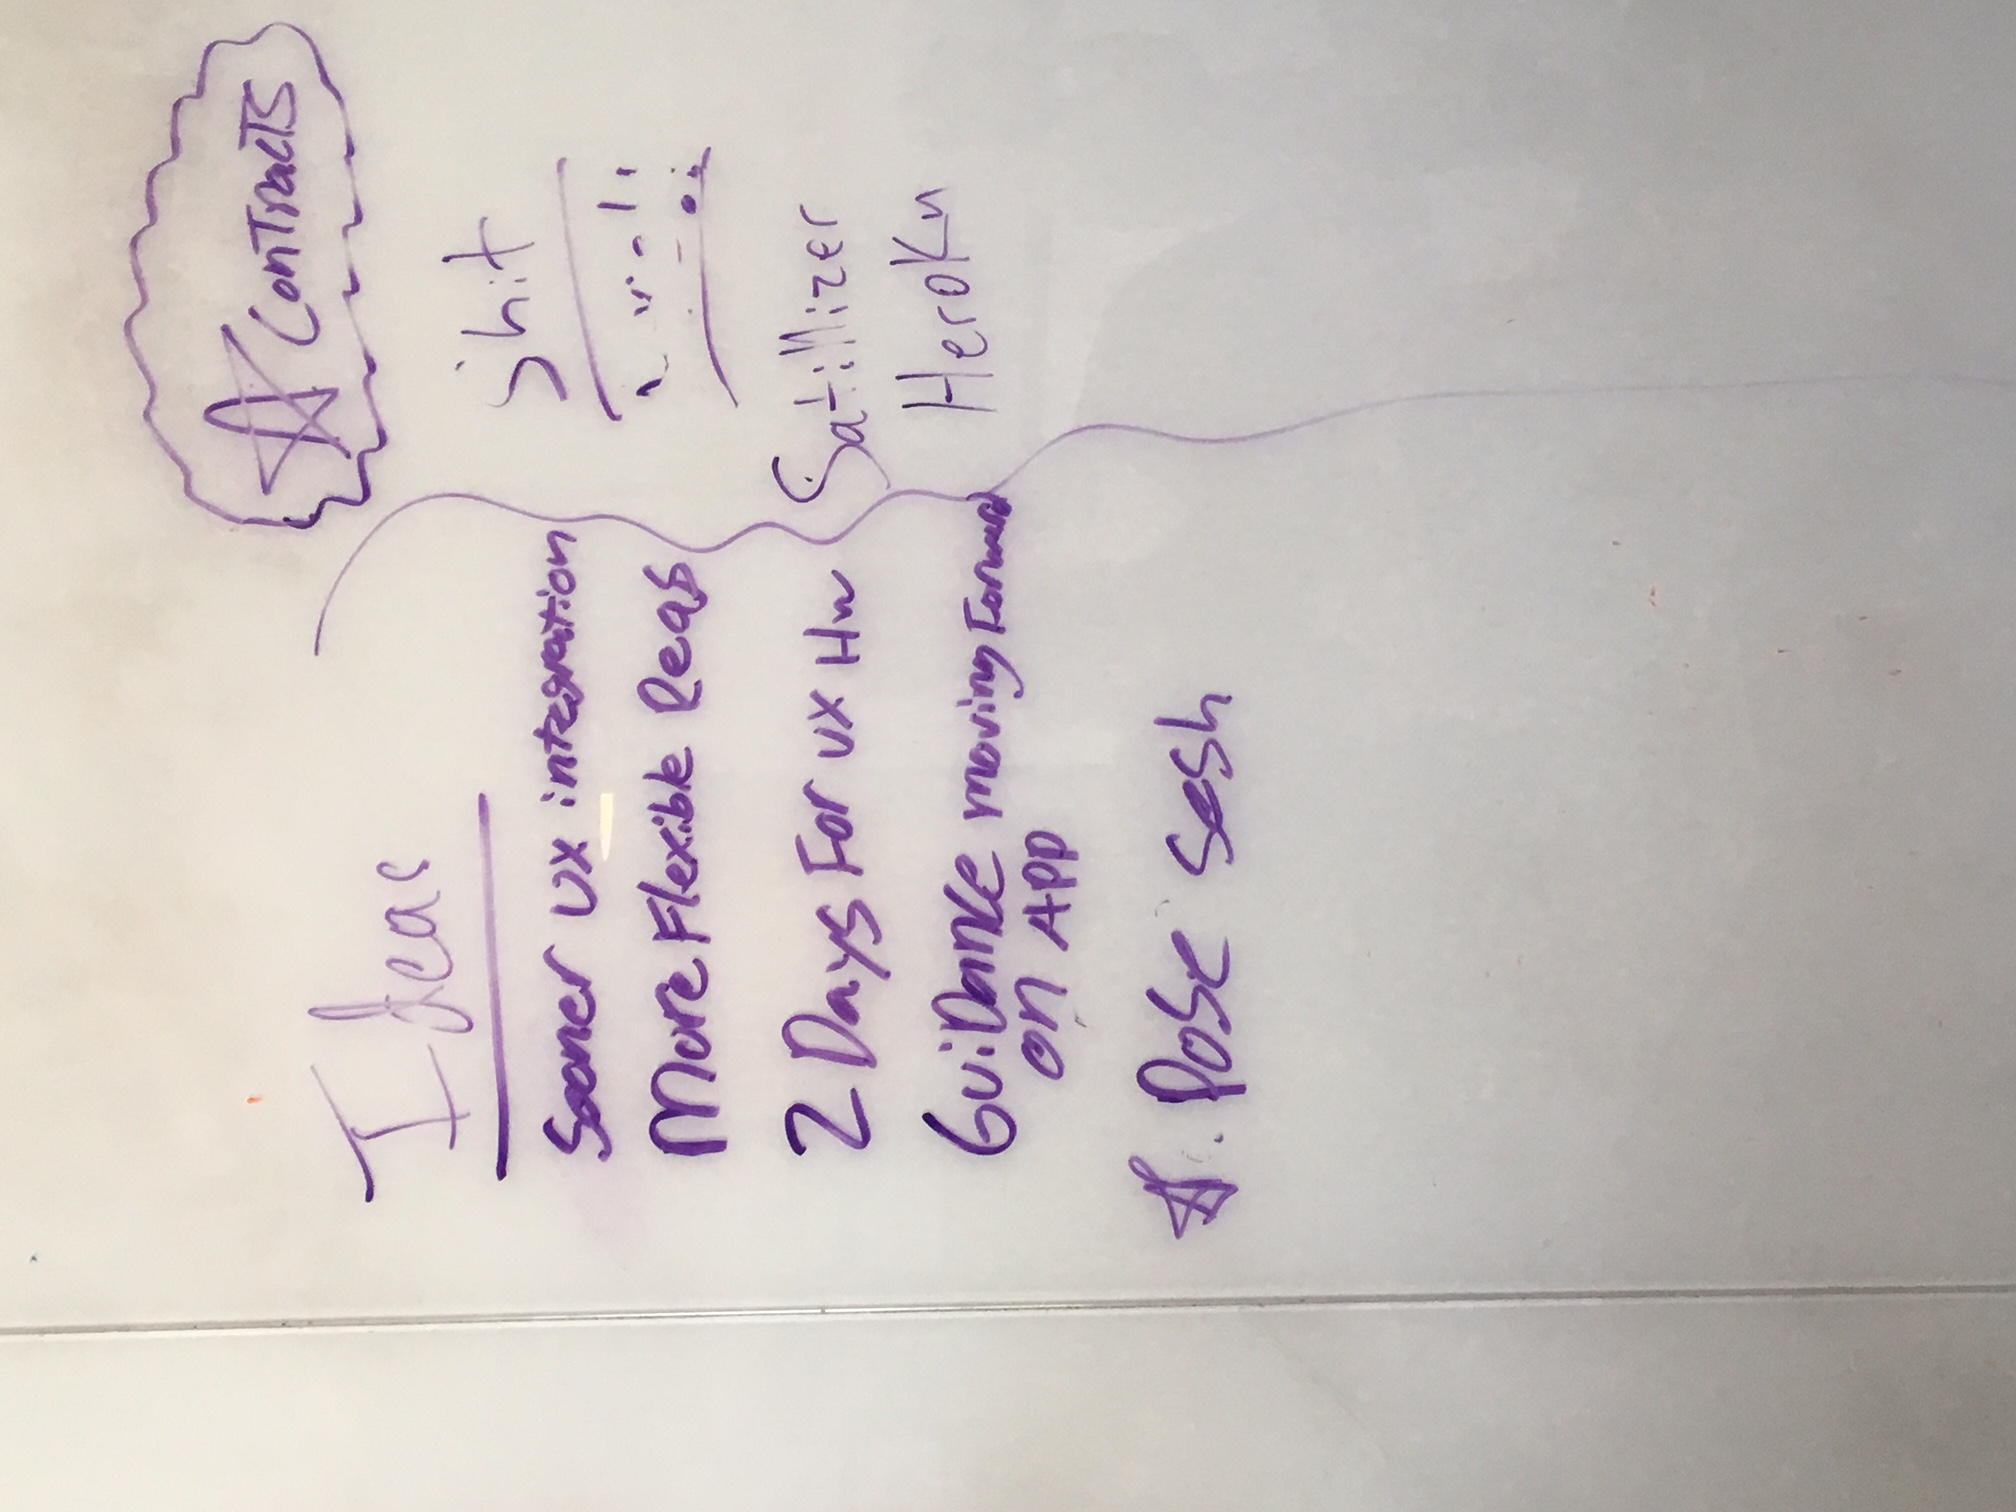 Ideas
Sooner UX integration
More Flexible Reqs
2 Days For UX HW
GuiDance moving Forward
on APP
Pose sesh
ConTracTs
shit
Satillizer
HeroKu